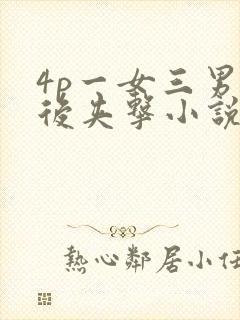 4p一女三男
後失擊小說
熱心鄰居小任